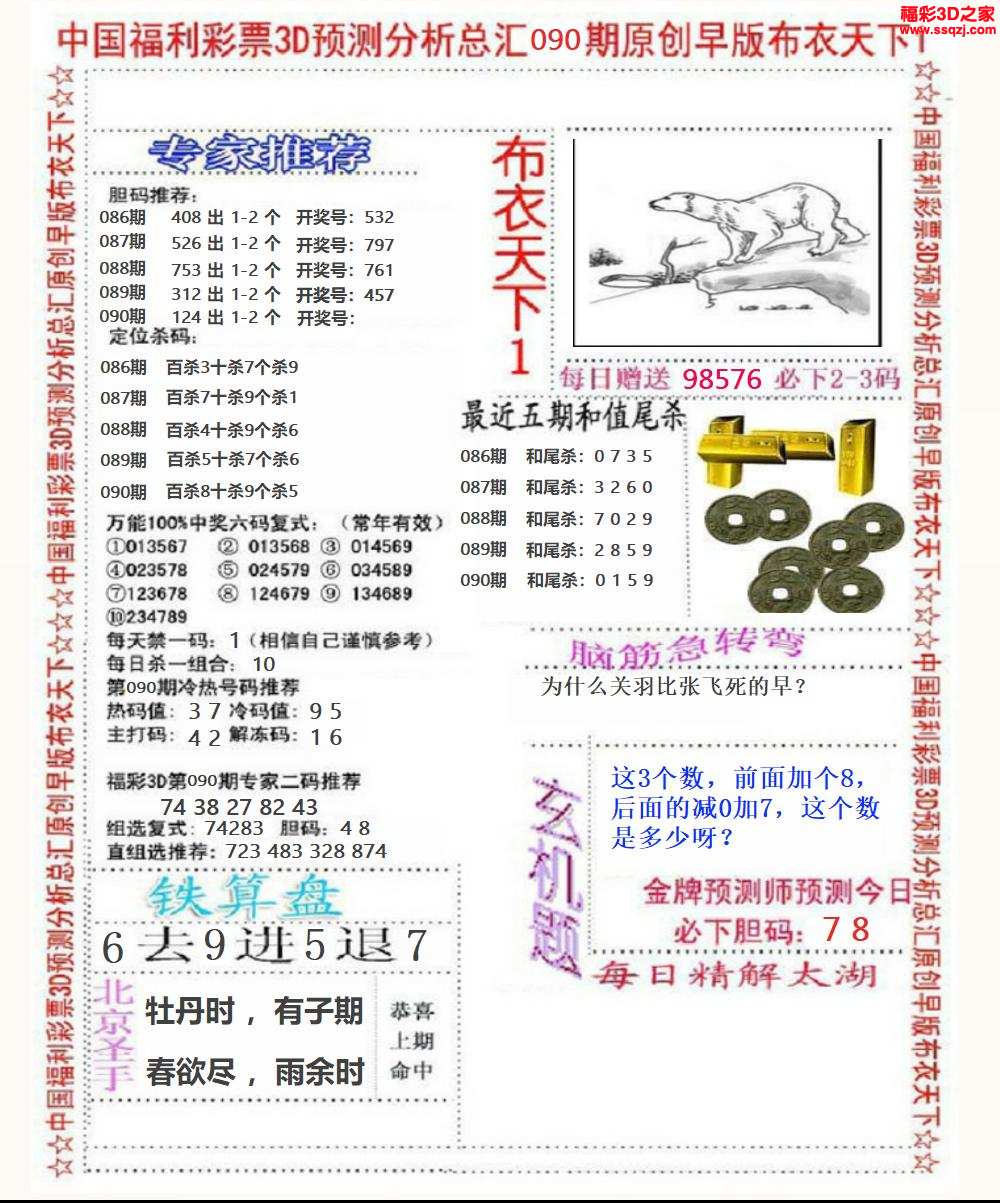 福彩3D之家
www.ssqzj.com
中国福利彩票3D预测分析总汇090期原创早版布衣天下1
☆☆中国福利彩票3D预测分析总汇原创早版布衣天下☆☆中国福利彩票3D预测分析总汇原创早版布衣天下☆☆
专家推荐
胆码推荐:
086期 408 出 1-2 个 开奖号: 532
087期 526 出 1-2 个 开奖号: 797
088期 753 出 1-2 个 开奖号: 761
089期 312 出 1-2 个 开奖号: 457
090期 124 出 1-2 个 开奖号:
定位杀码:
086期 百杀3十杀7个杀9
087期 百杀7十杀9个杀1
088期 百杀4十杀9个杀6
089期 百杀5十杀7个杀6
090期 百杀8十杀9个杀5
万能100%中奖六码复式: (常年有效)
①013567 ② 013568 ③ 014569
④023578 ⑤ 024579 ⑥ 034589
⑦123678 ⑧ 124679 ⑨ 134689
⑩234789
每天禁一码: 1 (相信自己谨慎参考)
每日杀一组合: 10
第090期冷热号码推荐
热码值: 3 7 冷码值: 9 5
主打码: 4 2 解冻码: 1 6
福彩3D第090期专家二码推荐
74 38 27 82 43
组选复式: 74283 胆码: 4 8
直组选推荐: 723 483 328 874
铁算盘
6去9进5退7
北京圣手
牡丹时，有子期
春欲尽，雨余时
恭喜
上期
命中
布衣天下1
每日赠送 98576 必下2-3码
最近五期和值尾杀
086期 和尾杀: 0 7 3 5
087期 和尾杀: 3 2 6 0
088期 和尾杀: 7 0 2 9
089期 和尾杀: 2 8 5 9
090期 和尾杀: 0 1 5 9
脑筋急转弯
为什么关羽比张飞死的早?
玄机题
这3个数，前面加个8，
后面的减0加7，这个数
是多少呀?
金牌预测师预测今日
必下胆码: 7 8
每日精解太湖
☆☆中国福利彩票3D预测分析总汇原创早版布衣天下☆☆中国福利彩票3D预测分析总汇原创早版布衣天下☆☆